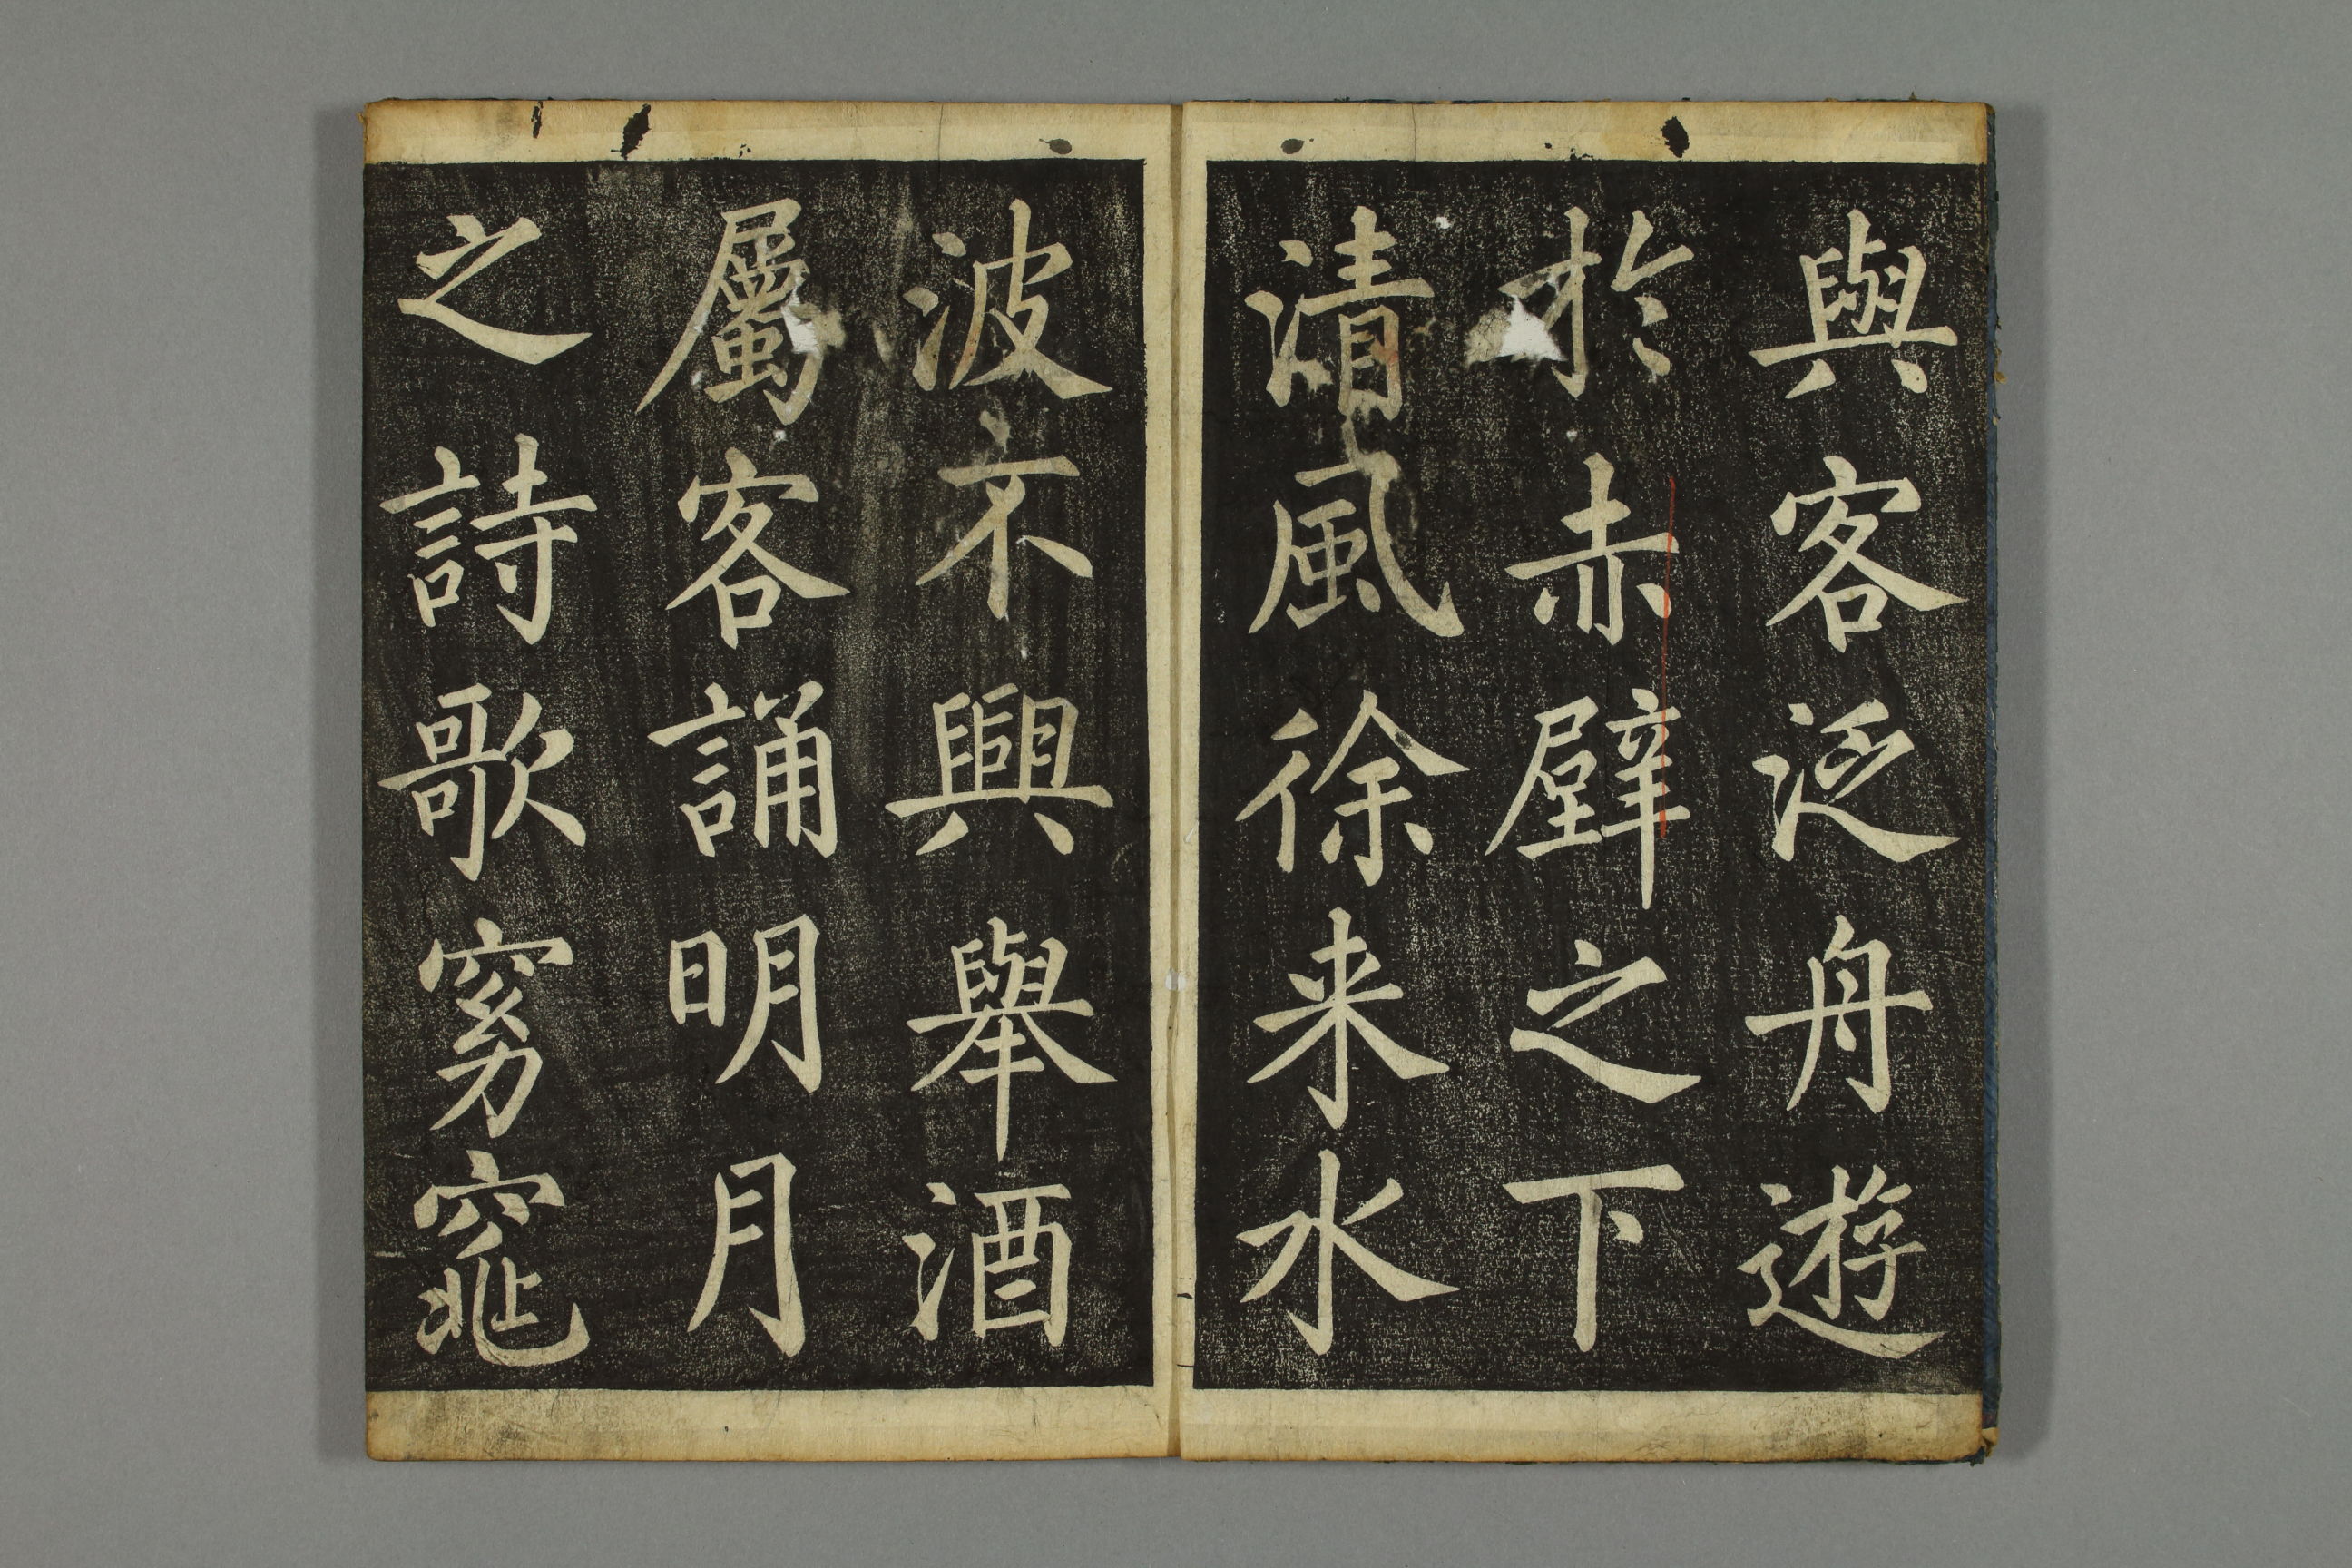 與客泛舟遊
於赤壁之下
清風徐来水
波不興舉酒
屬客誦明月
之詩歌窈窕